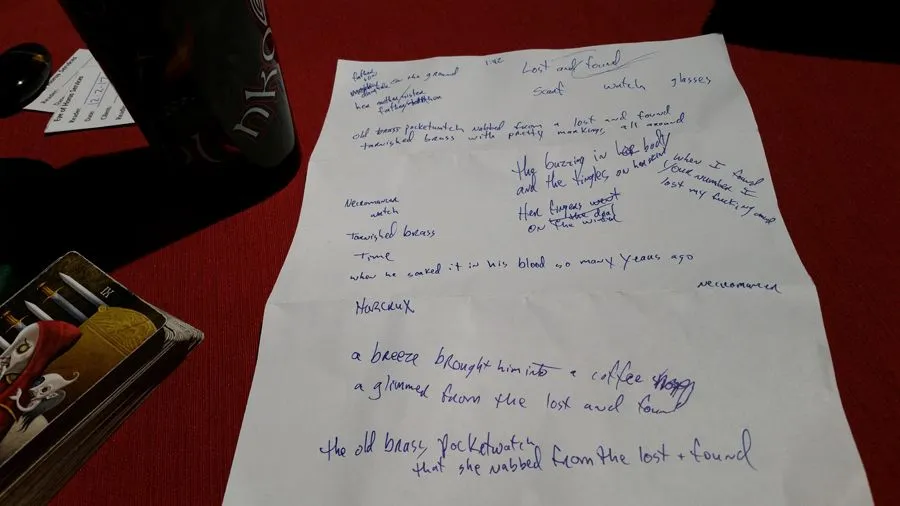 Eye of Horus Services
Reader:
Date: 12.2.17
Client:
Reader:
IX
nko
father
son
on the ground
her mother/sister
father
Lost and found
Scarf watch glasses
old brass pocketwatch nabbed from a lost and found
tarnished brass with pretty markings all around
the buzzing in her body
and the tingles on her skin
when I found
your number I
lost my fucking mind
Necromancer
watch
Her fingers went
to the dial
on the wind
Tarnished brass
Time
when he soaked it in his blood so many years ago
Necromancer
Horcrux
a breeze brought him into a coffee shop
a glimmer from the lost and found
the old brass pocketwatch
that she nabbed from the lost + found